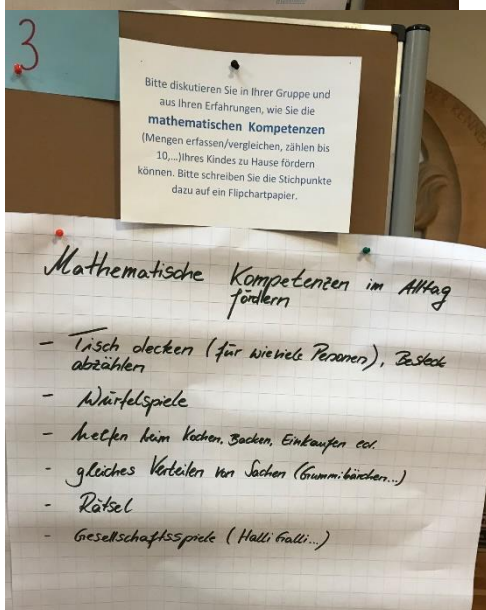 3
Bitte diskutieren Sie in Ihrer Gruppe und
aus Ihren Erfahrungen, wie Sie die
mathematischen Kompetenzen
(Mengen erfassen/vergleichen, zählen bis
10,...)Ihres Kindes zu Hause fördern
können. Bitte schreiben Sie die Stichpunkte
dazu auf ein Flipchartpapier.
Mathematische Kompetenzen im Alltag
fördern
- Tisch decken (für wieviele Personen), Besteck
abzählen
- Würfelspiele
- helfen beim Kochen, Backen, Einkaufen ect.
- gleiches Verteilen von Sachen (Gummibärchen...)
- Rätsel
- Gesellschaftsspiele (Halli Galli...)